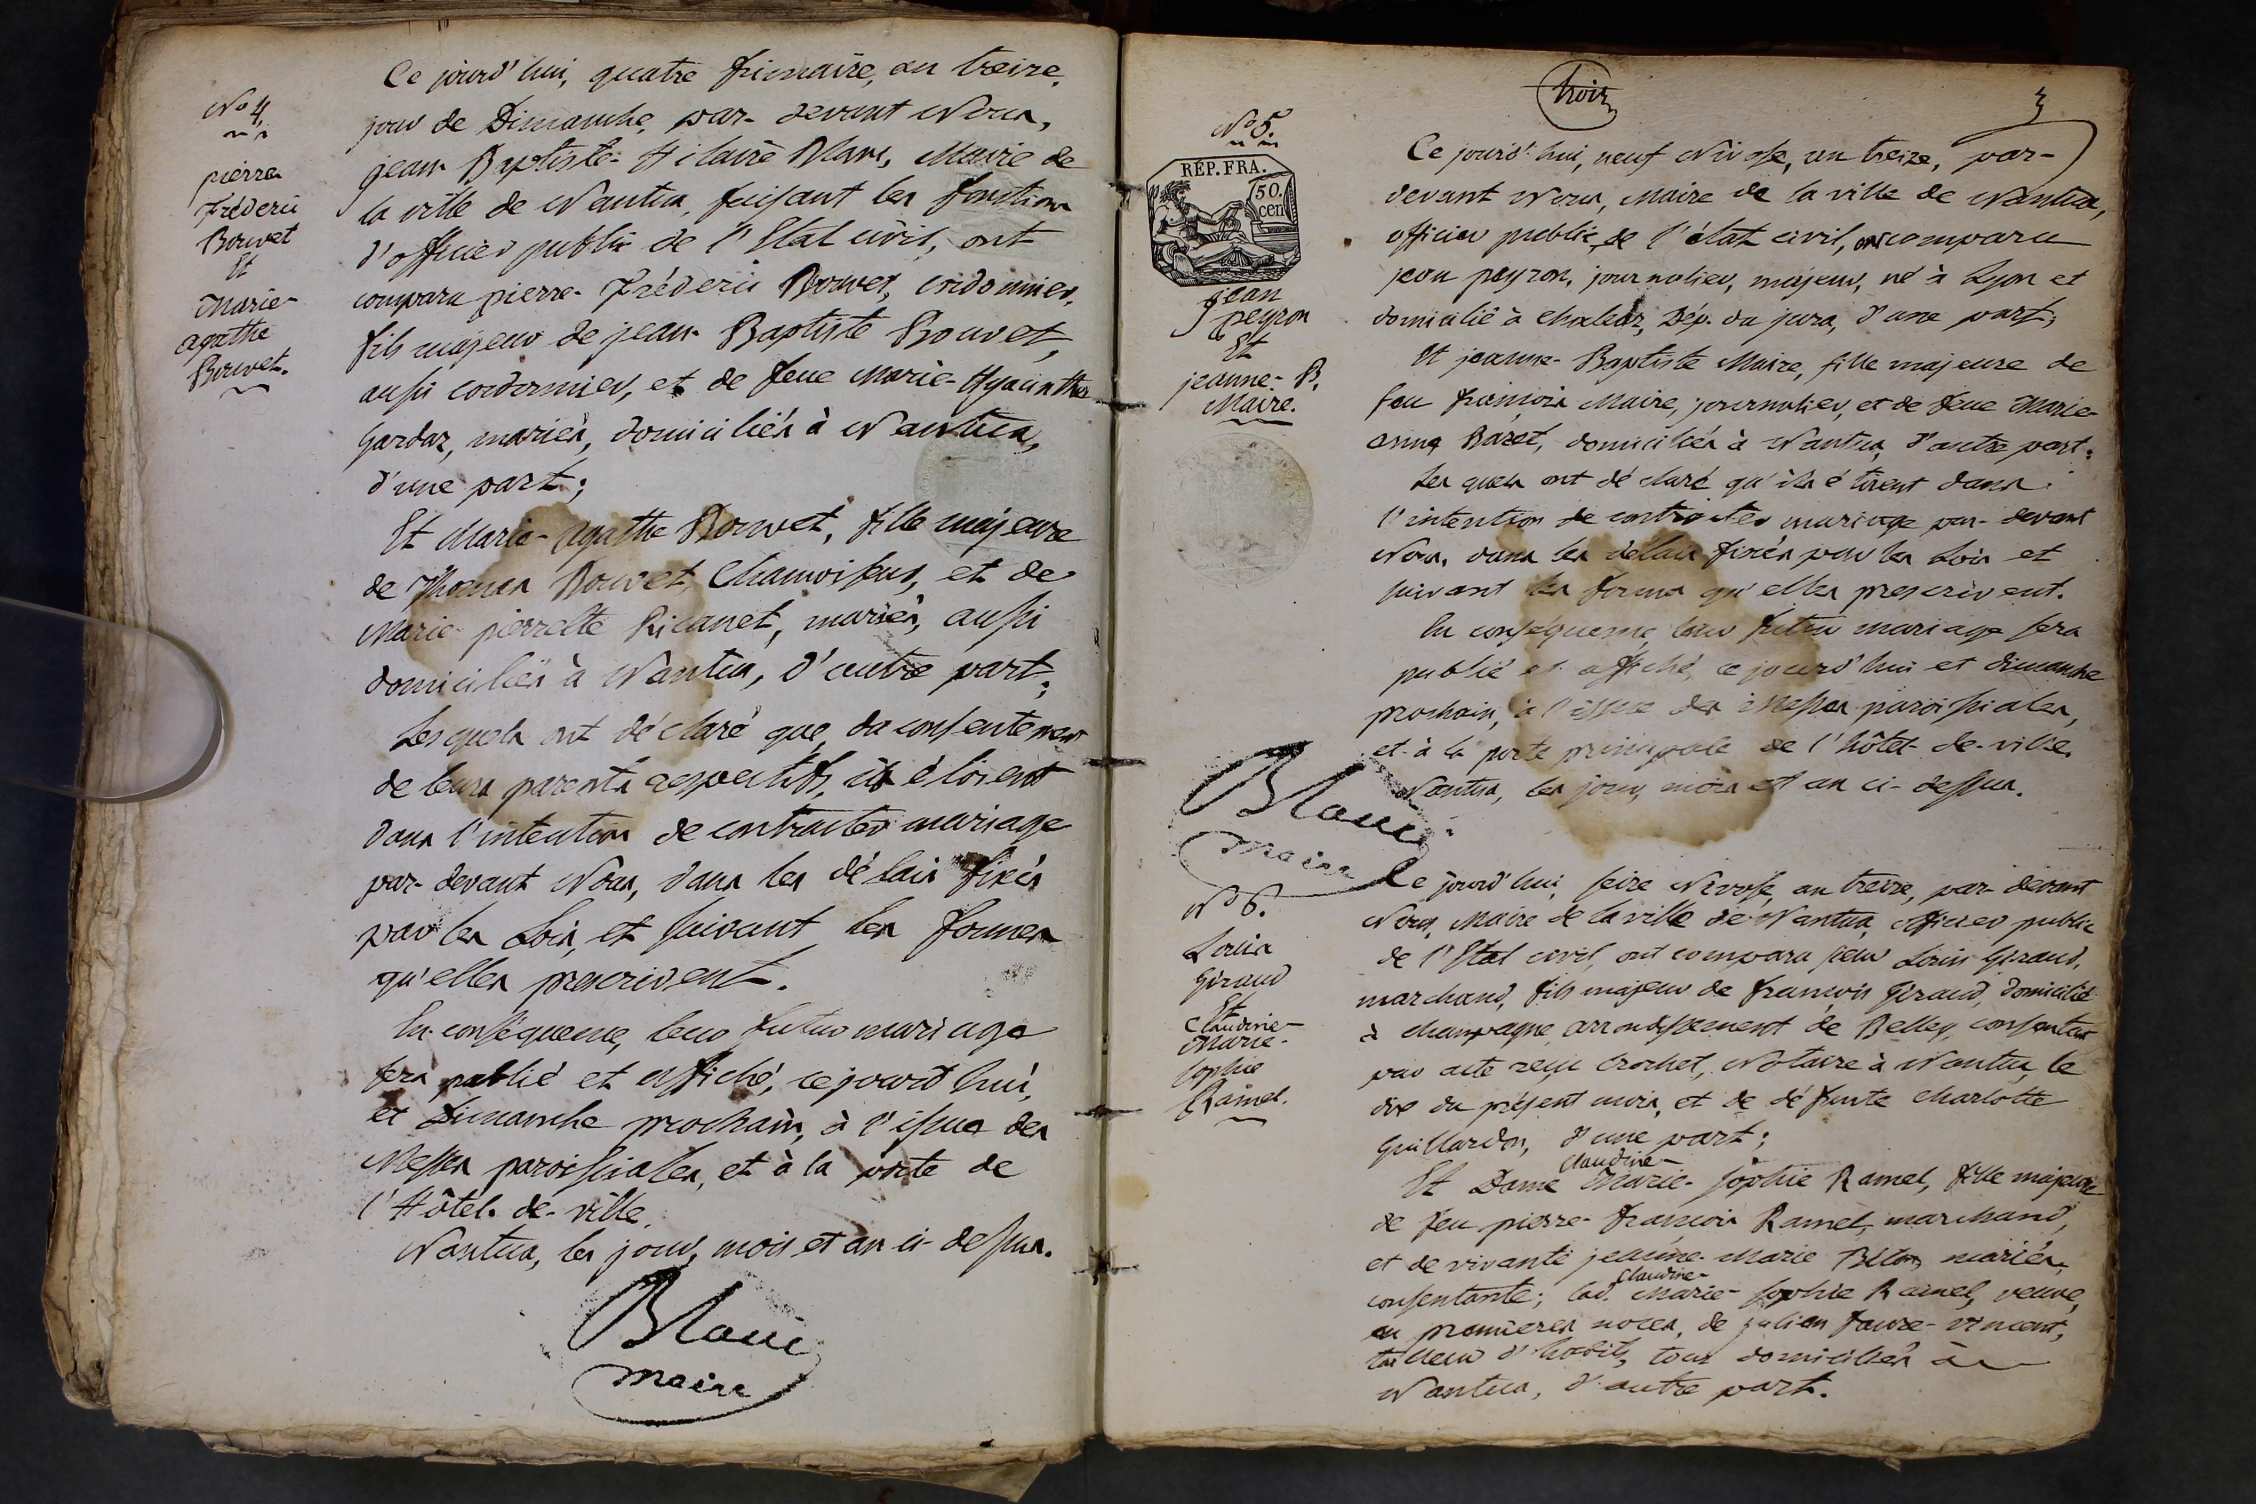 Ce jourd'hui, quatre frimaire, an treize,
jour de Dimanche, par-devant Nous,
jean Baptiste-Hilaire Blanc, Maire de
la ville de Nantua, faisant les fonctions
d'officier public de l'Etat civil, ont
comparu pierre-Fréderic Bouvet, cordonnier,
fils majeur de jean-Baptiste Bouvet,
aussi cordonnier, et de feue Marie-Hyacinthe
Gardaz, mariés, domiciliés à Nantua,
d'une part;
Et Marie-agathe Bouvet, fille majeure
de Thomas Bouvet, Chamoiseur, et de
Marie-pierrette Ricanet, mariés, aussi
domiciliés à Nantua, d'autre part;
Lesquels ont déclaré que, du consentement
de leurs parents respectifs, ils étoient
dans l'intention de contracter mariage
par-devant Nous, dans les délais fixés
par les Lois, et suivant les formes
qu'elles prescrivent.
En conséquence, leur futur mariage
sera publié et affiché, cejourd'hui,
et Dimanche prochain, à l'issue des
Messes paroissiales, et à la porte de
l'Hôtel-de-ville.
Nantua, les jour, mois et an ci-dessus.
Blanc
maire
No 4.
pierre
Fréderic
Bouvet
Et
Marie-
agathe
Bouvet.
trois
3
No 5.
RÉP. FRA.
50.
cen
jean
peyron
Et
jeanne-B.
Maire.
Ce jourd'hui, neuf Nivose, an treize, par-
devant Nous, Maire de la ville de Nantua,
officier public de l'état civil, ont comparu
jean peyron, journalier, majeur, né à Lyon et
domicilié à , Dép. du jura, d'une part;
Et jeanne-Baptiste Maire, fille majeure de
feu françois Maire, journalier, et de feue Marie-
anne Baret, domiciliés à Nantua, d'autre part.
Lesquels ont déclaré qu'ils étoient dans
l'intention de contracter mariage par-devant
Nous, dans les délais fixés par les Lois et
suivant les formes qu'elles prescrivent.
En conséquence, leur futur mariage sera
publié et affiché, ce jourd'hui et dimanche
prochain, à l'issue des Messes paroissiales,
et à la porte principale de l'hôtel-de-ville.
Nantua, les jour, mois et an ci-dessus.
Blanc
maire
No 6.
Louis
Giraud
Et
Claudine-
Marie-
Sophie
Ramel.
Ce jourd'hui, seize Nivose, an treize, par-devant
Nous, Maire de la ville de Nantua, officier public
de l'Etat civil, ont comparu sieur Louis Giraud,
marchand, fils majeur de françois Giraud, domicilié
à champagne, arrondissement de Belley, consentant
par acte reçu Crochet, Notaire à Nantua, le
dix du présent mois, et de défunte Charlotte
Guillardon, d'une part;
Claudine-
Et Dame Marie-Sophie Ramel, fille majeure
de feu pierre-françois Ramel, marchand,
et de vivante jeanne-Marie Billon, mariés,
Claudine-
consentante; lad. Marie-Sophie Ramel, veuve,
en premieres noces, de julien favre-vincent,
tailleur d'habits, tous domiciliés à
Nantua, d'autre part.